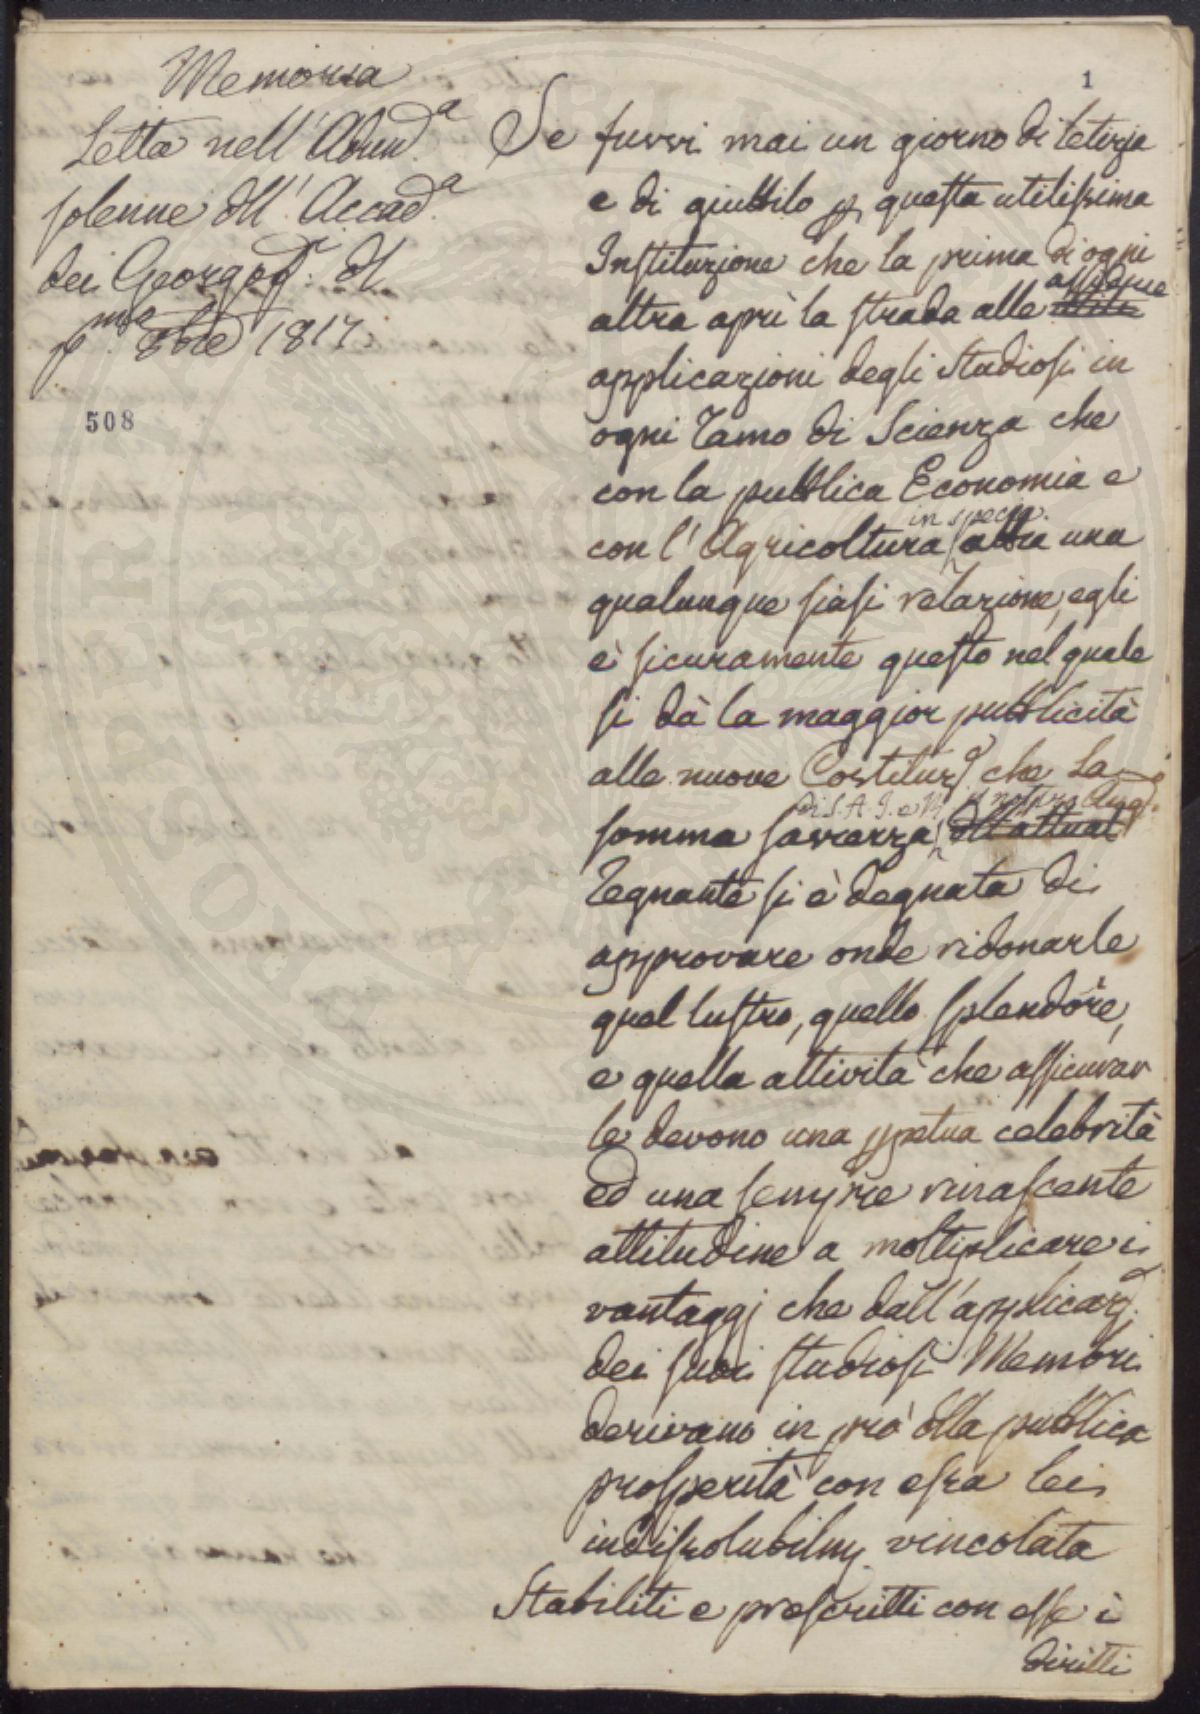 Memoria
Letta nell' Adun.a
solenne dell' Accad.a
dei Georgof: del
p.mo 8bre 1817
508
1
Se fuvvi mai un giorno di letizia
e di giubbilo p questa utilissima
Instituzione che la prima di ogni
altra aprì la strada alle utili assidue
applicazioni degli Studiosi in
ogni ramo di Scienza che
con la pubblica Economia e
con l' Agricoltura in specie abbia una
qualunque siasi relazione, egli
è sicuramente questo nel quale
si dà la maggior pubblicità
alle nuove Costituz.i che la
somma saviezza di S. A. I. e R. il nostro Aug.o dell' attual
regnante si è degnata di
approvare onde ridonarle
quel lustro, quello splendore,
e quella attività che assicurar
le devono una ppetua celebrità
ed una sempre rinascente
attitudine a moltiplicare i
vantaggj che dall' applicaz.e
dei suoi studiosi Membri
derivano in prò della pubblica
prosperità con essa lei
indissolubilm. vincolata
Stabiliti e prescritti con esse i
diritti
PROSPERITATI PUBLICAE